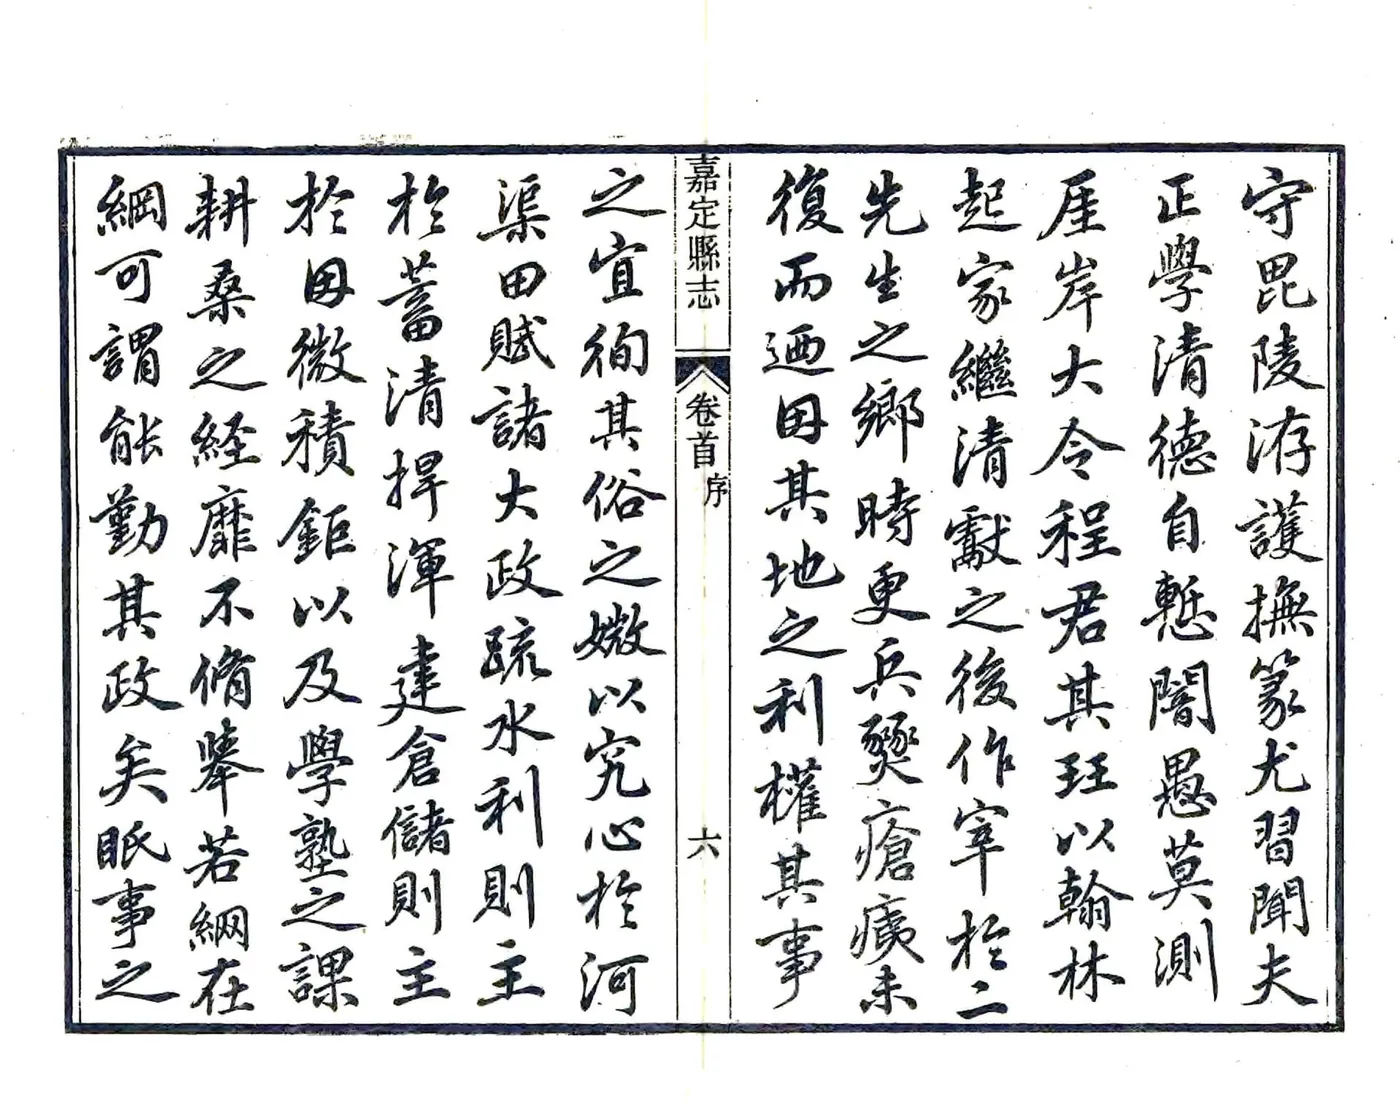 守毘陵洊護撫篆尤習聞夫
正學清德自慙闇愚莫測
厓岸大令程君其珏以翰林
起家繼清獻之後作宰於二
先生之鄉時更兵燹瘡痍未
復而迺因其地之利權其事
嘉定縣志
卷首
序
六
之宜徇其俗之媺以究心於河
渠田賦諸大政疏水利則主
於蓄清捍渾建倉儲則主
於因微積鉅以及學塾之課
耕桑之経靡不脩舉若綱在
綱可謂能勤其政矣眂事之